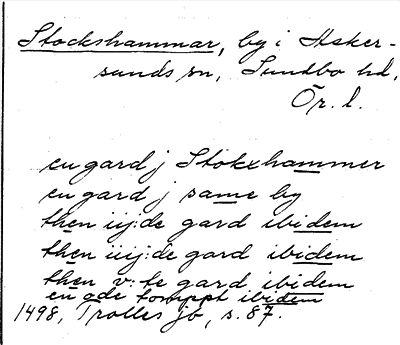 Stockshammar, by i Asker-
sunds sn, Sundbo hd,
Ör. l.
en gard j Stokxhammer
en gard j same by
then iij:de gard ibidem
then iiij:de gard ibidem
then v:te gard ibidem
en øde tomppt ibidem
1498, Trolles jb, s. 87.